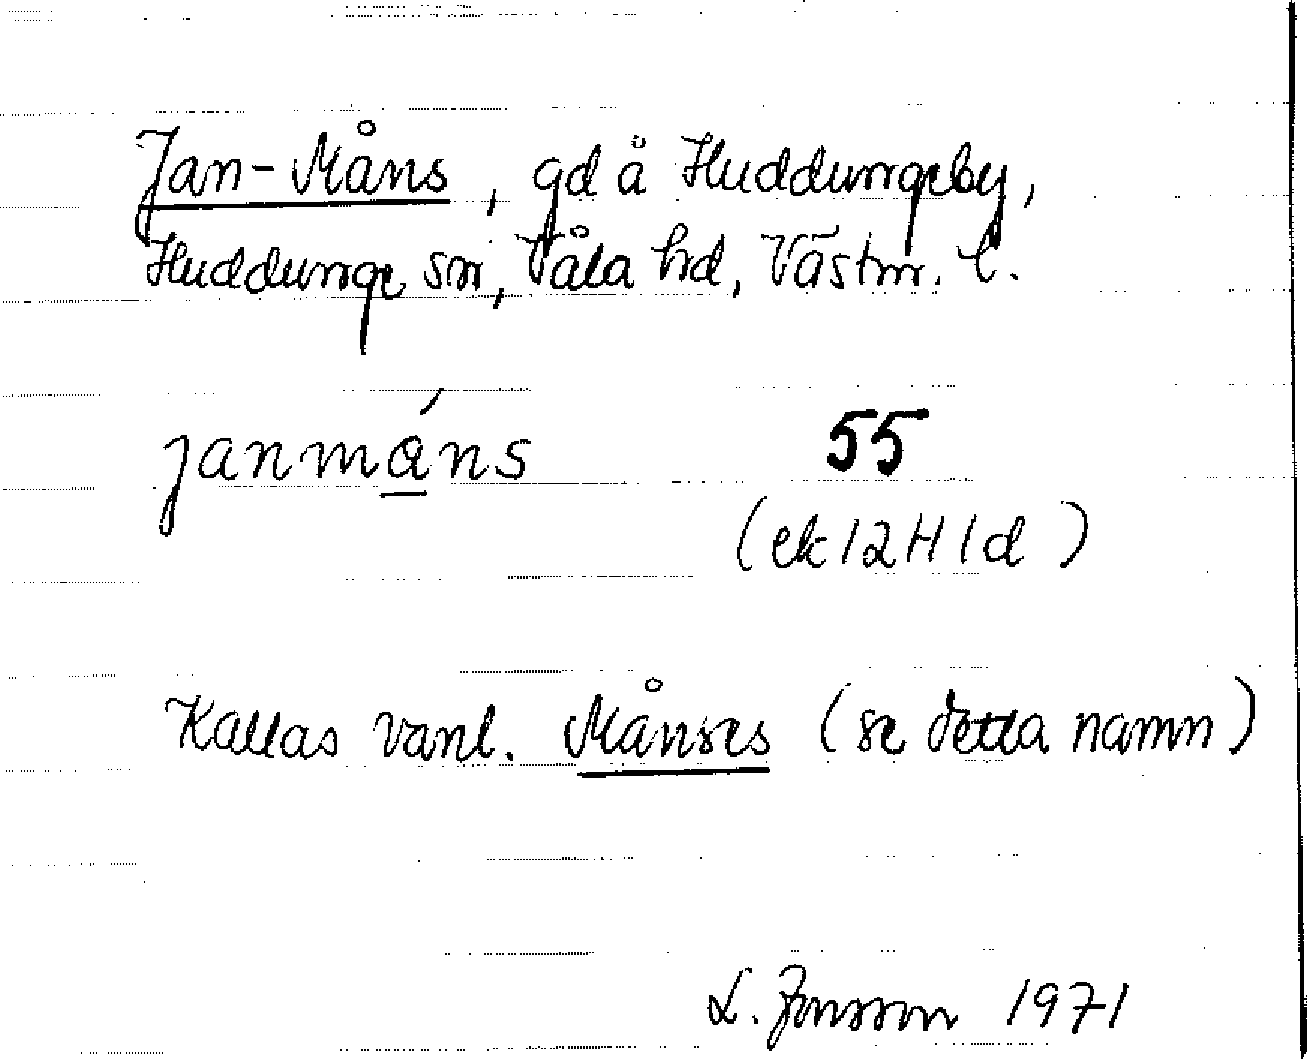 Jan-Måns, gd å Huddungeby,
Huddunge sn, Våla hd, Västm. l.
janmáns 55
(ek 12 H 1d)
Kallas vanl. Månses (se detta namn)
L. Jonsson 1971